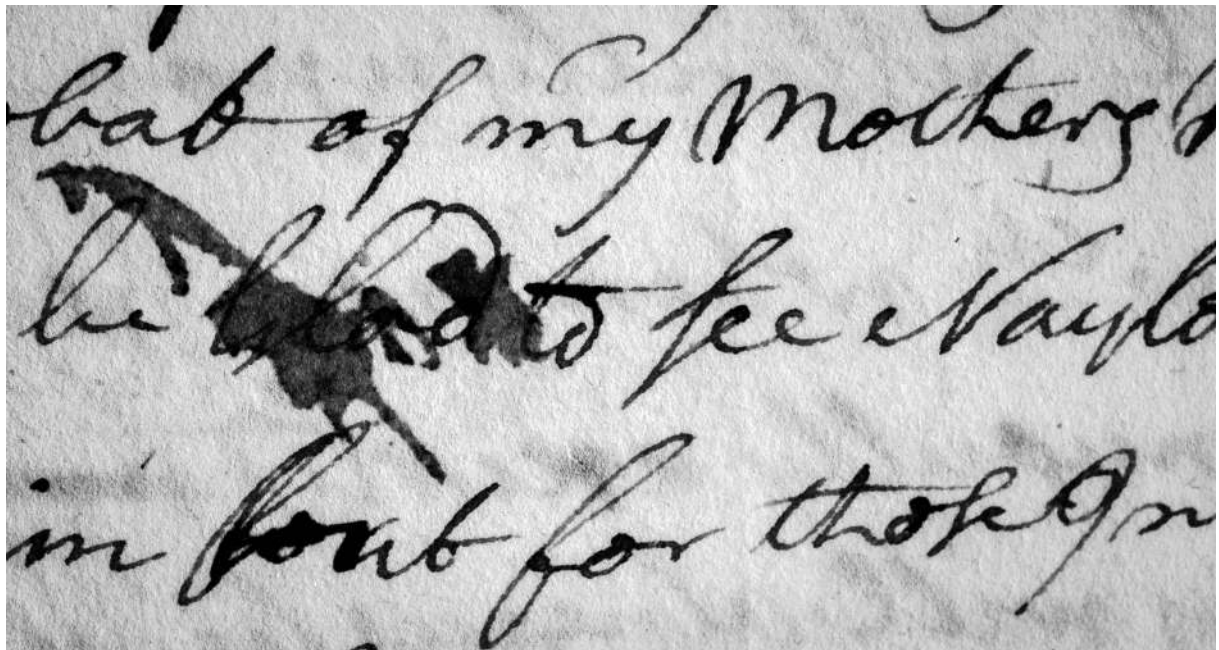 of my Mothers
be glad to see Naylo
in for those In